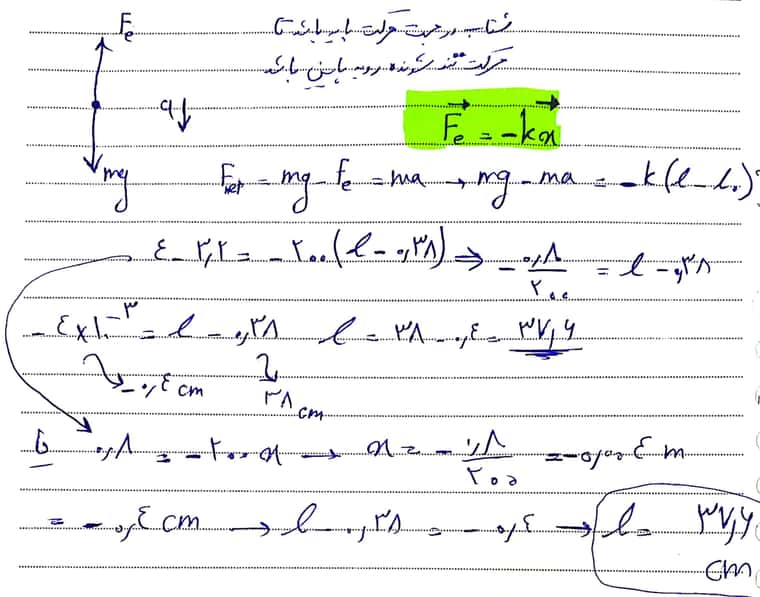 Fe
شتاب در جهت حرکت باید باشد تا
حرکت تند شونده رو به پایین باشد
a↓
Fe = -kx
mg
Fnet = mg - Fe = ma → mg - ma = -k(l - l₀)
٤ - ٣,٢ = -٢٠٠(l - ٠,٣٨) ⇒ -٠,٨/٢٠٠ = l - ٠,٣٨
-٤×١٠⁻³ = l - ٠,٣٨ l = ٣٨ - ٠,٤ = ٣٧,۶
↳ -٠,٤ cm ↳ ٣٨ cm
یا ٠,٨ = -٢٠٠x → x = -٠,٨/٢٠٠ = -٠,٠٠٤ m
= -٠,٤ cm → l - ٠,٣٨ = -٠,٤ → l = ٣٧,۶
cm